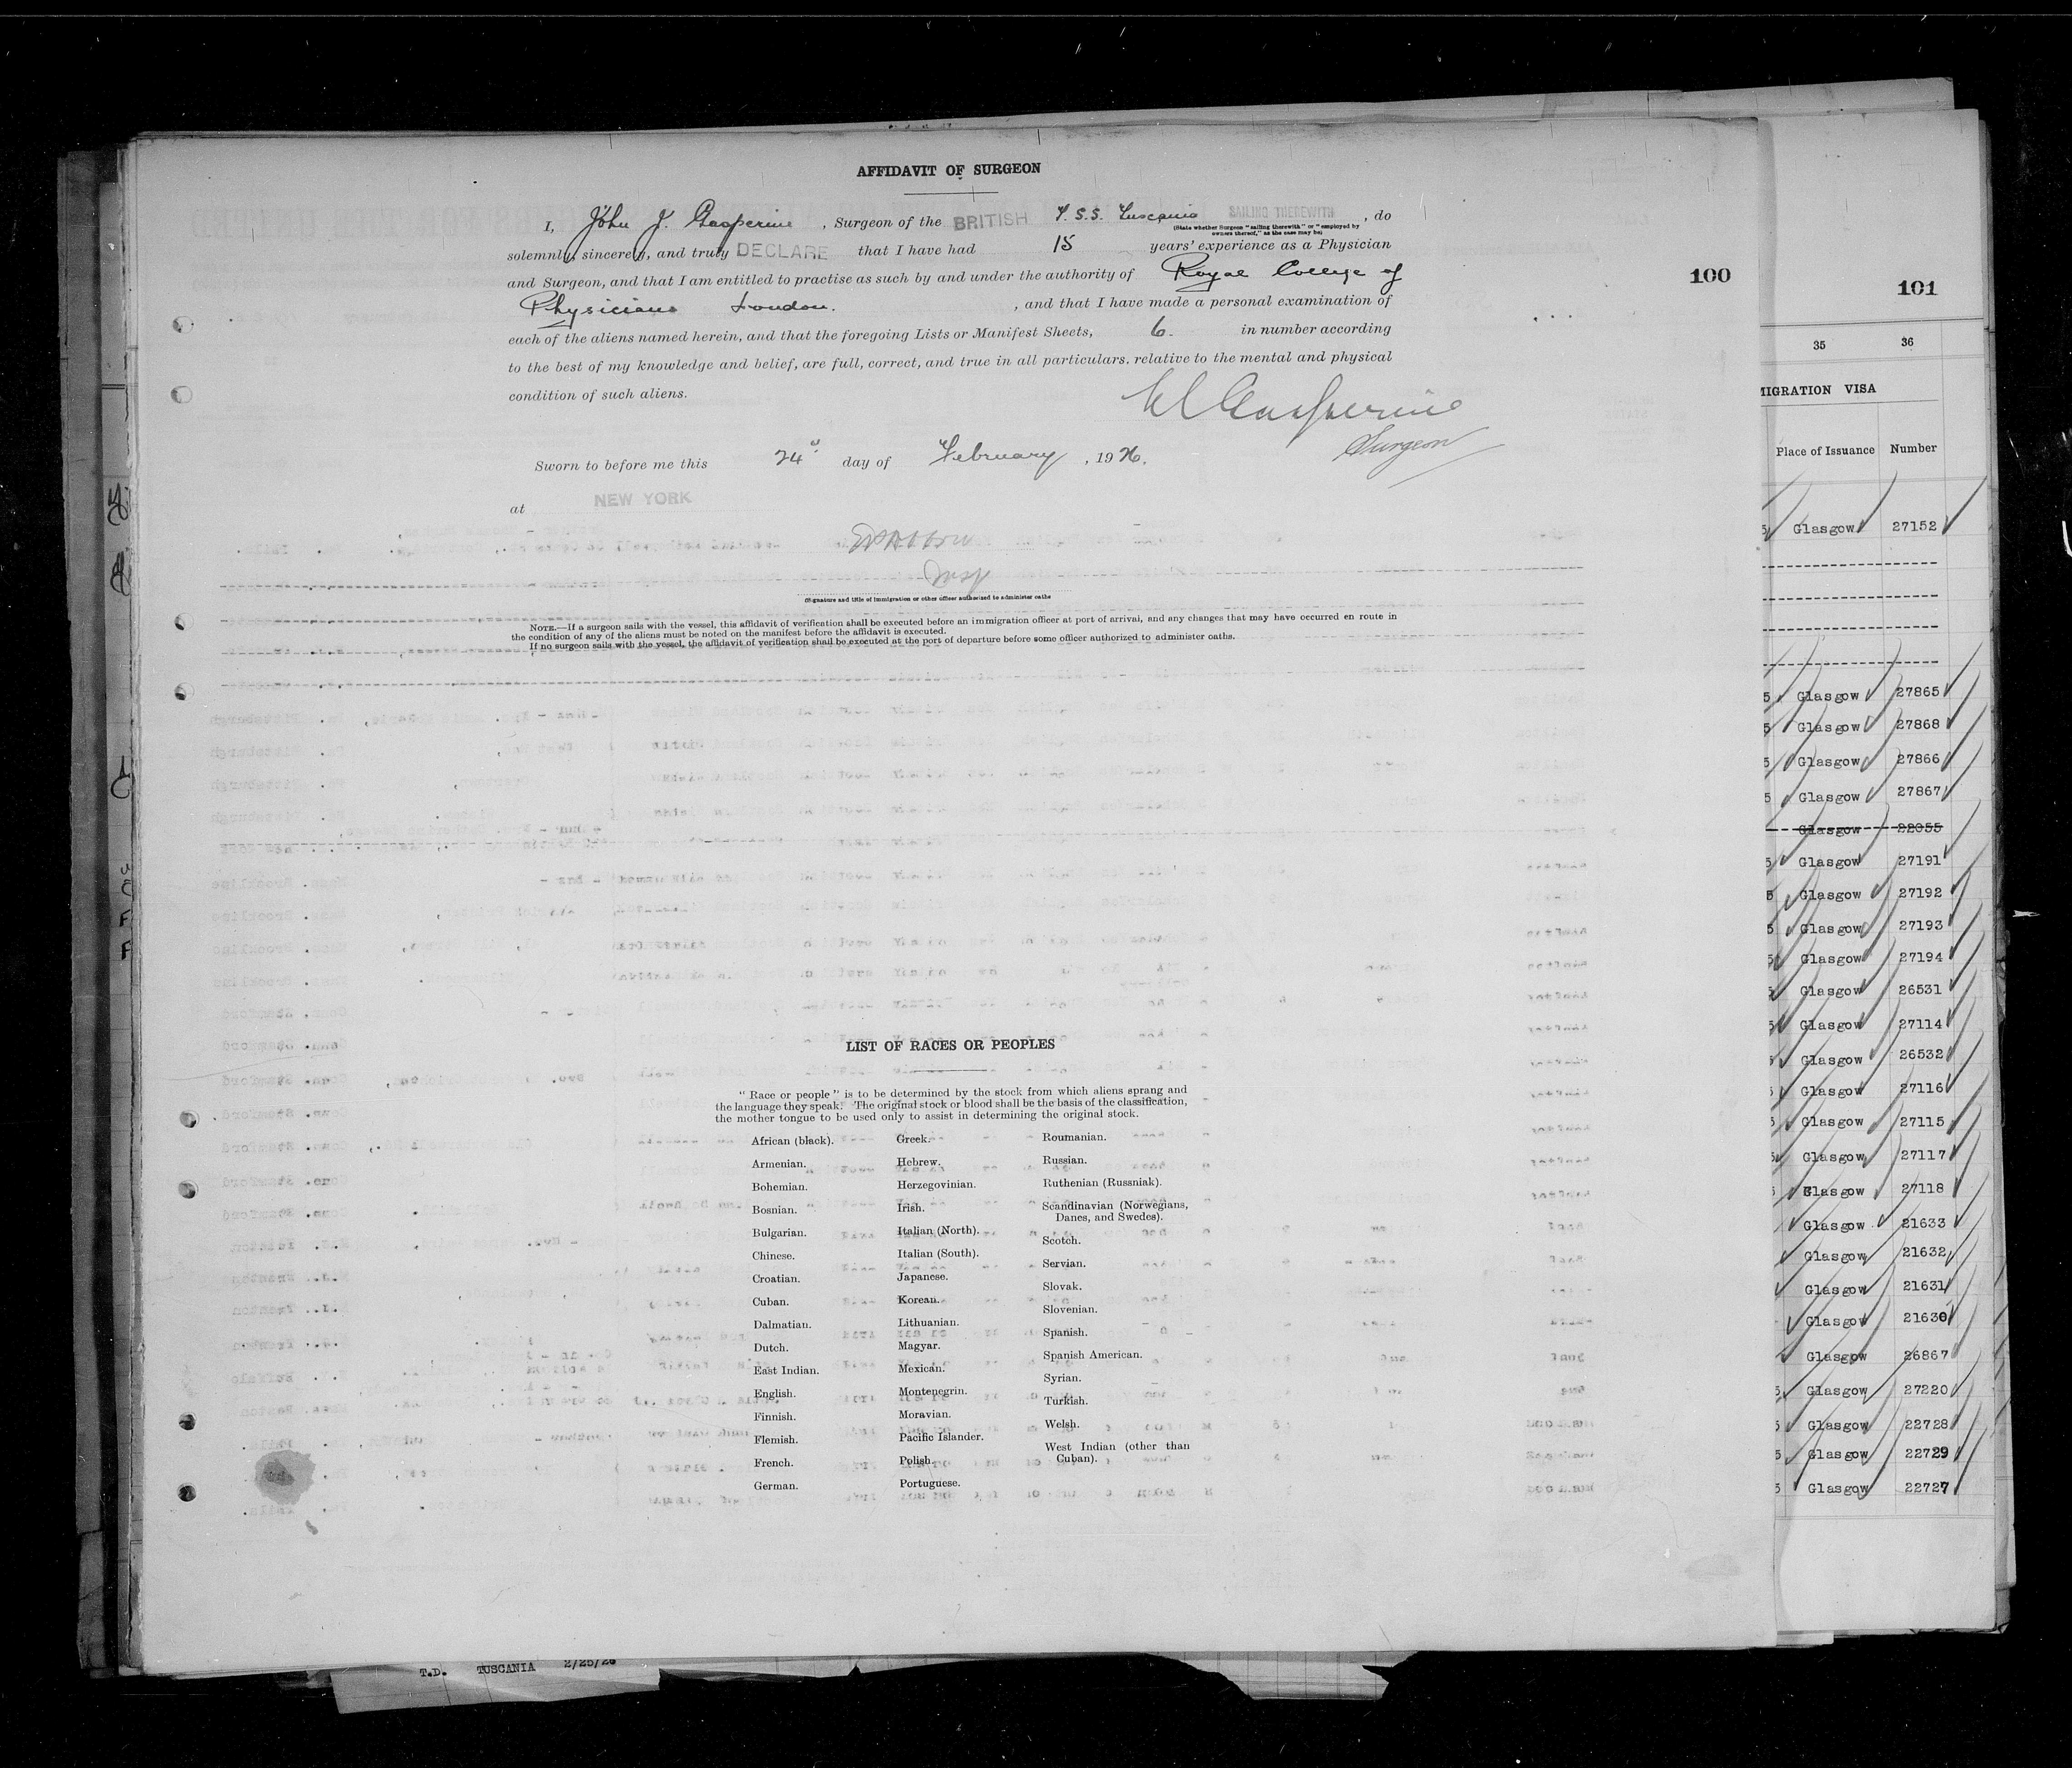 AFFIDAVIT OF SURGEON
I, John J. Gasperine, Surgeon of the BRITISH T.S.S. Tuscania SAILING THEREWITH, do
(State whether Surgeon "sailing therewith" or "employed by
owners thereof," as the case may be)
solemnly, sincerely, and truly DECLARE that I have had 15 years' experience as a Physician
and Surgeon, and that I am entitled to practise as such by and under the authority of Royal College of
Physicians London., and that I have made a personal examination of
each of the aliens named herein, and that the foregoing Lists or Manifest Sheets, 6. in number according
to the best of my knowledge and belief, are full, correct, and true in all particulars. relative to the mental and physical
condition of such aliens.
Gasperine
Surgeon
Sworn to before me this 24 day of February, 1926.
at NEW YORK
Insp
(Signature and title of immigration or other officer authorized to administer oaths
NOTE.—If a surgeon sails with the vessel, this affidavit of verification shall be executed before an immigration officer at port of arrival, and any changes that may have occurred en route in
the condition of any of the aliens must be noted on the manifest before the affidavit is executed.
If no surgeon sails with the vessel, the affidavit of verification shall be executed at the port of departure before some officer authorized to administer oaths.
LIST OF RACES OR PEOPLES
"Race or people" is to be determined by the stock from which aliens sprang and
the language they speak. The original stock or blood shall be the basis of the classification,
the mother tongue to be used only to assist in determining the original stock.
African (black).
Armenian.
Bohemian.
Bosnian.
Bulgarian.
Chinese.
Croatian.
Cuban.
Dalmatian.
Dutch.
East Indian.
English.
Finnish.
Flemish.
French.
German.
Greek.
Hebrew.
Herzegovinian.
Irish.
Italian (North).
Italian (South).
Japanese.
Korean.
Lithuanian.
Magyar.
Mexican.
Montenegrin.
Moravian.
Pacific Islander.
Polish.
Portuguese.
Roumanian.
Russian.
Ruthenian (Russniak).
Scandinavian (Norwegians,
Danes, and Swedes).
Scotch.
Servian.
Slovak.
Slovenian.
Spanish.
Spanish American.
Syrian.
Turkish.
Welsh.
West Indian (other than
Cuban).
100
101
35 36
MIGRATION VISA
Place of Issuance Number
Glasgow 27152
Glasgow 27865
Glasgow 27868
Glasgow 27866
Glasgow 27867
Glasgow 22055
Glasgow 27191
Glasgow 27192
Glasgow 27193
Glasgow 27194
Glasgow 26531
Glasgow 27114
Glasgow 26532
Glasgow 27116
Glasgow 27115
Glasgow 27117
Glasgow 27118
Glasgow 21633
Glasgow 21632
Glasgow 21631
Glasgow 21630
Glasgow 26867
Glasgow 27220
Glasgow 22728
Glasgow 22729
Glasgow 22727
T.D. TUSCANIA 2/25/26